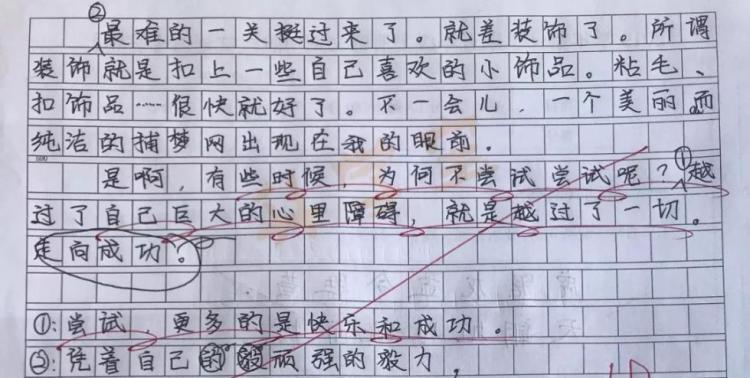 ②
最难的一关挺过来了。就差装饰了。所谓
装饰就是扣上一些自己喜欢的小饰品。粘毛、
扣饰品……很快就好了。不一会儿，一个美丽而
纯洁的捕梦网出现在我的眼前。
是啊，有些时候，为何不尝试尝试呢？①越
过了自己巨大的心里障碍，就是越过了一切。
走向成功。
①：尝试，更多的是快乐和成功。
②：凭着自己的毅顽强的毅力，